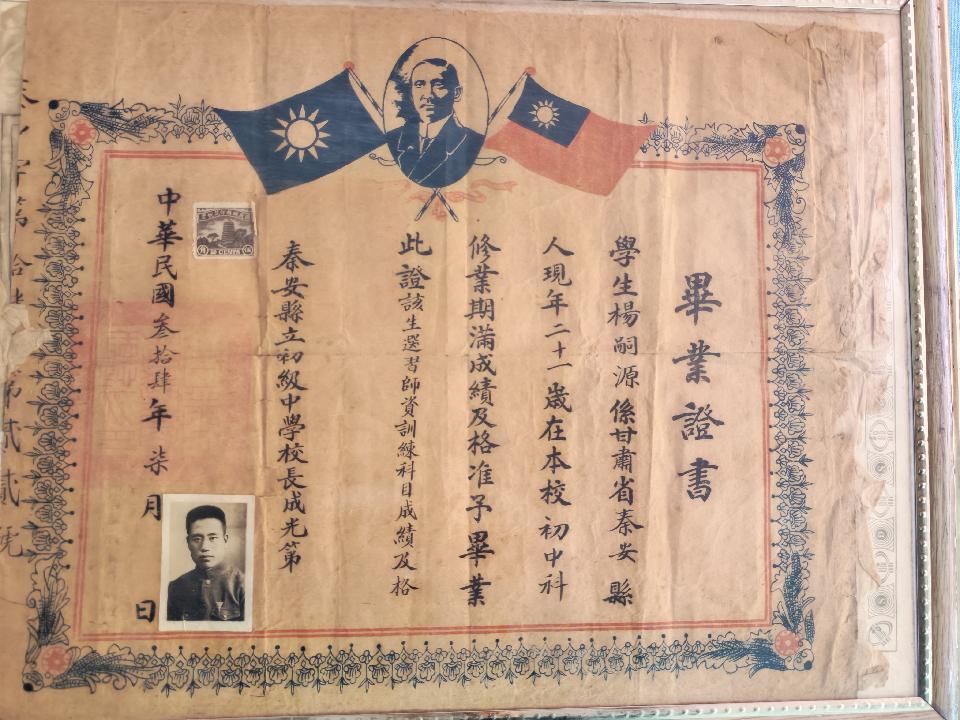 畢業證書
學生楊嗣源係甘肅省秦安縣
人現年二十一歲在本校初中科
修業期滿成績及格准予畢業
此證該生選習師資訓練科目成績及格
秦安縣立初級中學校長成光第
中華民國叁拾肆年柒月 日
第貳貳號